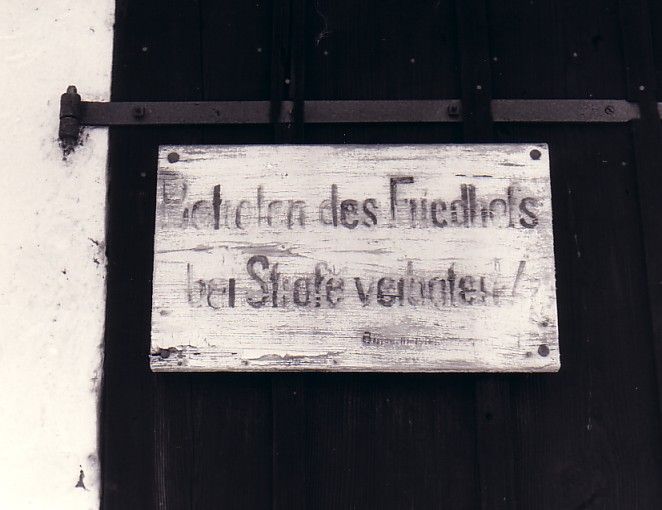 Betreten des Friedhofs
bei Strafe verboten!